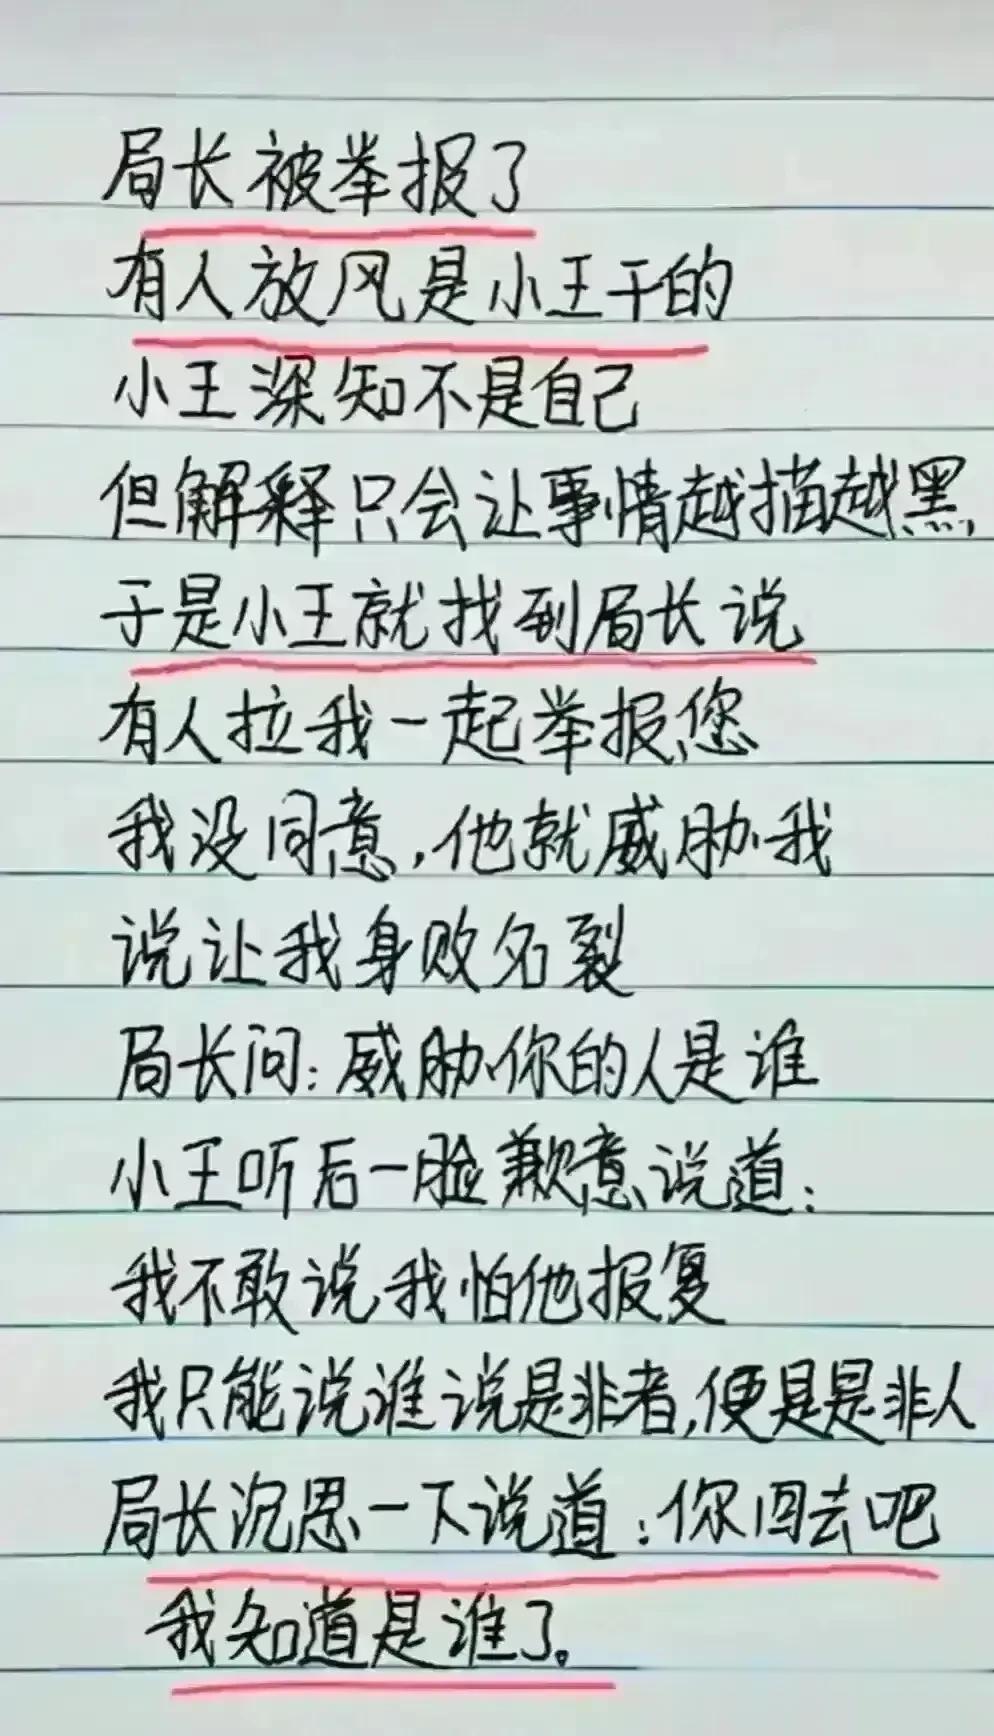 局长被举报了
有人放风是小王干的
小王深知不是自己
但解释只会让事情越描越黑,
于是小王就找到局长说
有人拉我一起举报您
我没同意,他就威胁我
说让我身败名裂
局长问:威胁你的人是谁
小王听后一脸歉意说道:
我不敢说我怕他报复
我只能说谁说是非者,便是是非人
局长沉思一下说道:你回去吧
我知道是谁了。